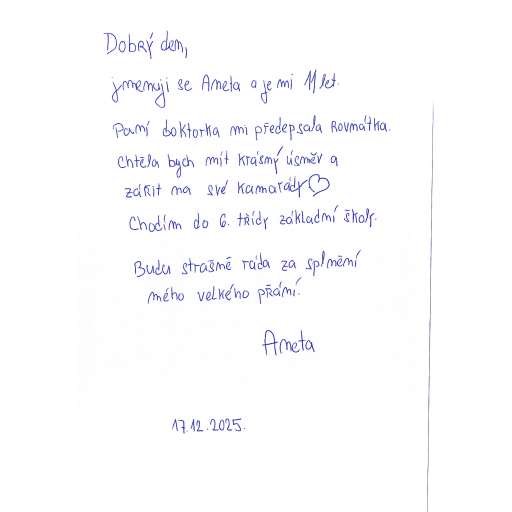 Dobrý den,
jmenuji se Aneta a je mi 11 let.
Paní doktorka mi předepsala Rovnátka.
Chtěla bych mít krásný úsměv a
zářit na své kamarády♡
Chodím do 6. třídy základní školy.
Budu strašně ráda za splnění
mého velkého přání.
Aneta
17.12.2025.